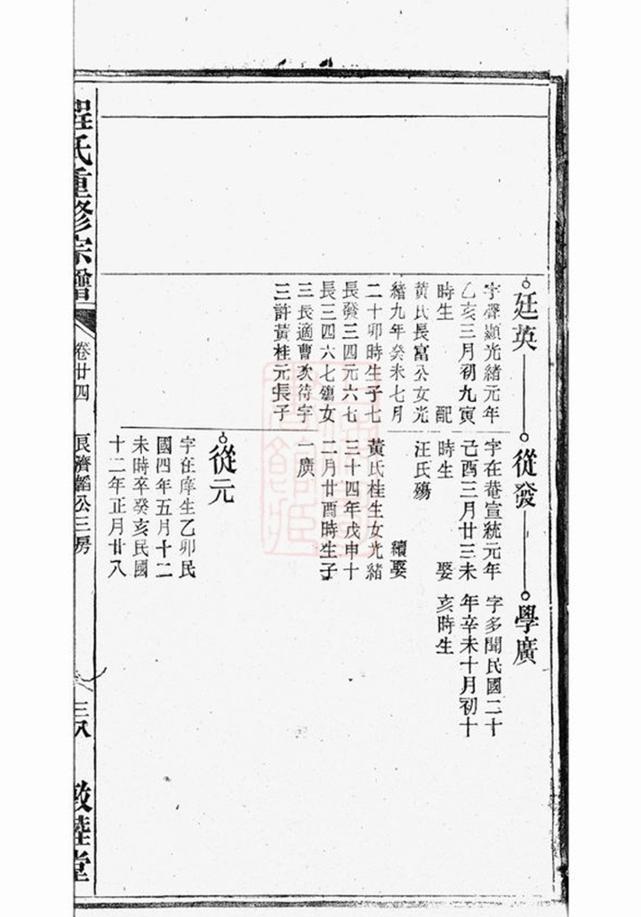 廷英
字聲顯光緒元年
乙亥三月初九寅
時生 配
黃氏長富公女光
緒九年癸未七月
二十卯時生子七
長發三四元六七
長三四六七殤女
三長適曹次待字
三許黃桂元長子
從發
字在菴宣統元年
己酉三月廿三未
時生 娶
汪氏殤
續娶
黃氏桂生女光緒
三十四年戊申十
二月廿酉時生子
一廣
學廣
字多聞民國二十
年辛未十月初十
亥時生
從元
字在庠生乙卯民
國四年五月十二
未時卒癸亥民國
十二年正月廿八
程氏重修宗譜
卷廿四
良濟韜公三房
三八
敦睦堂